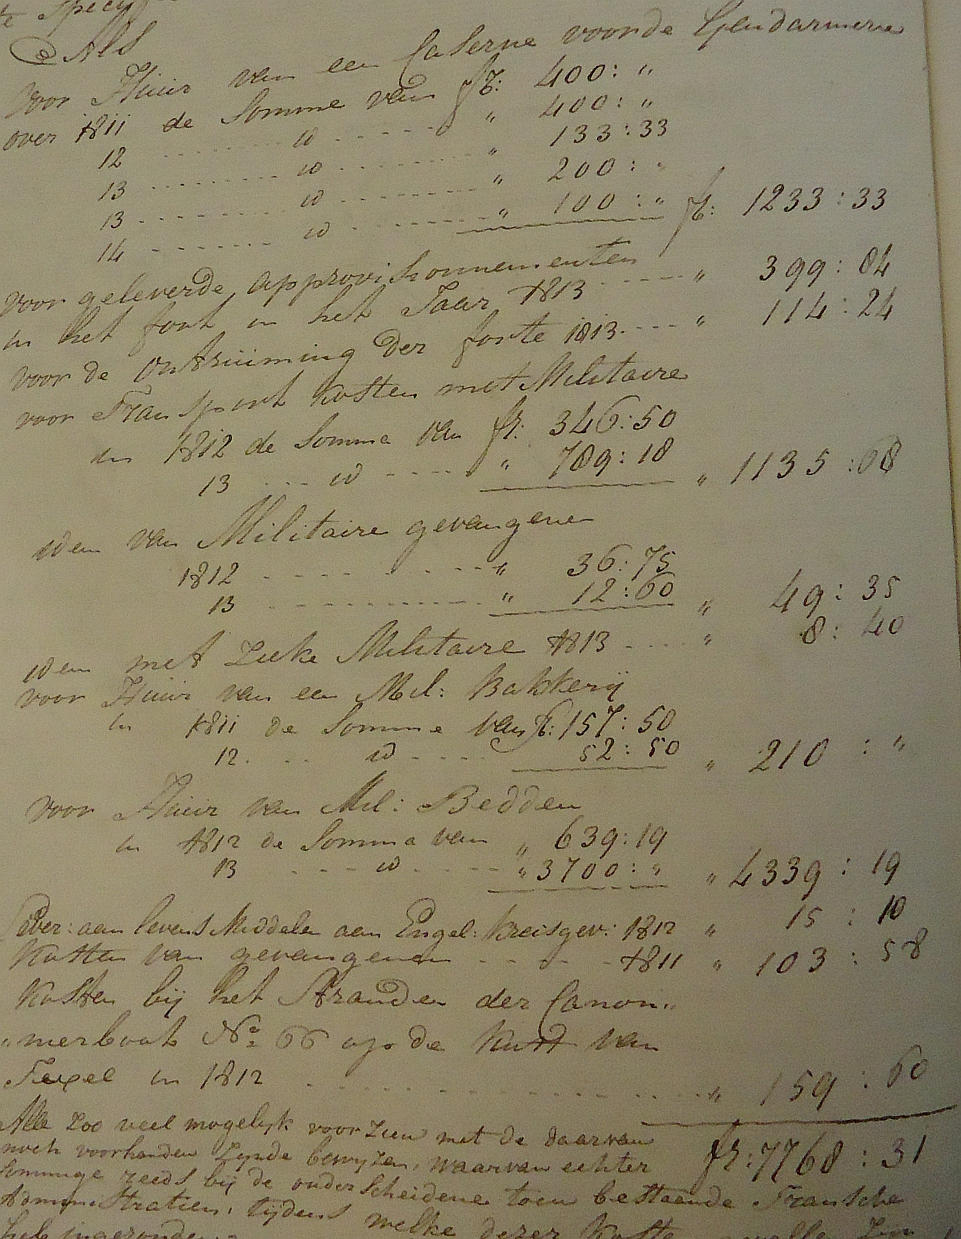 te Specif
@ Als
voor Huur van een Caserne voor de Gendarmerie
over 1811 de Somme van fr: 400: "
12 - - - - - id - - - - " 400: "
13 - - - - - id - - - - " 133:33
13 - - - - - id - - - - " 200: "
14 - - - - - id - - - - " 100: " fr: 1233:33
voor geleverde approvisionnementen
in het fort in het Jaar 1813 - - - - " 399:04
voor de ontruiming der forte 1813 - - - - " 114:24
voor Transport kosten met Militaire
in 1812 de Somma van fr: 346:50
13 - - - id - - - - " 789:18 " 1135:68
idem van Militaire gevangenen
1812 - - - - - - " 36:75
13 - - - - - - " 12:60 " 49:35
idem met Zieke Militaire 1813 - - - - " 8:40
voor Huur van een Mil: Bakkerij
in 1811 de Somme van fr: 157:50
12. - - - id - - - - 52:50 " 210 : "
voor Huur van Mil: Bedden
in 1812 de Somma van " 639:19
13 - - - id - - - - " 3700: " " 4339:19
Lever: aan levens Middelen aan Engel: kreisgev: 1812 " 15:10
Kosten van gevangenen - - - - 1811 " 103:58
Kosten bij het Stranden der Canon"
"nierboot No 66 op de Kust van
Texel in 1812 - - - - - - - - " 159:60
Alle zoo veel mogelijk voorzien met de daarvan
noch voorhanden Zijnde bewyzen, waarvan echter fr: 7768:31
Sommige reeds bij de onderscheidene toen bestaande Fransche
Administratien, tijdens welke dezer Koste gevallen Zijn